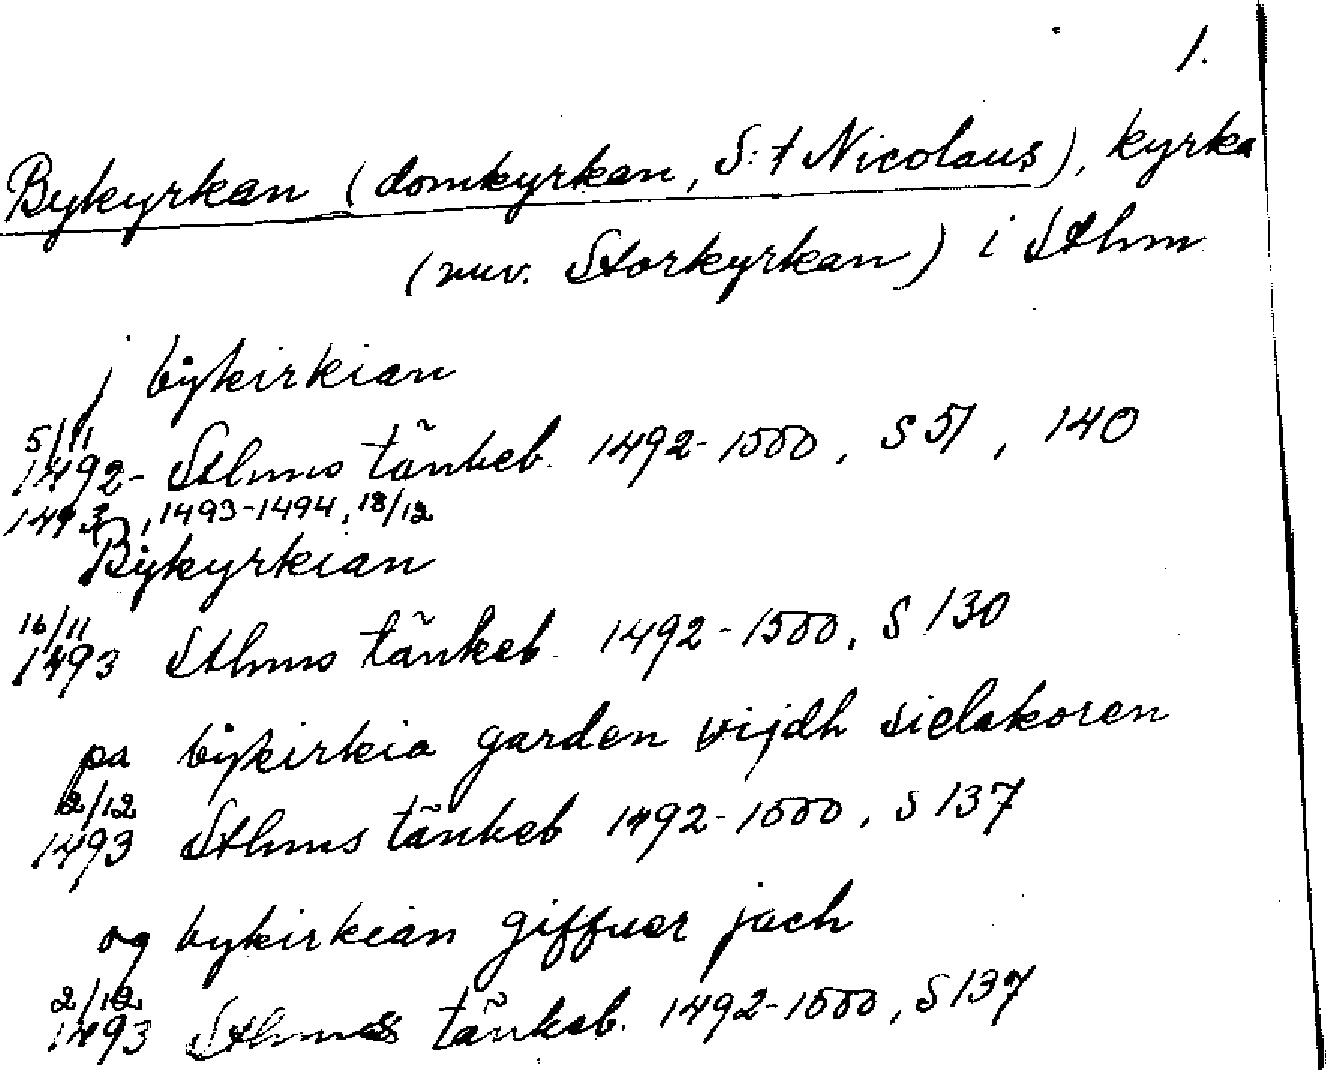 1.
Bykyrkan (domkyrkan, S:t Nicolaus), kyrka
(nuv. Storkyrkan) i Sthm
j bÿkirkian
5/11
1492- Sthms tänkeb. 1492-1500, s 51, 140
1493, 1493-1494, 18/12
Bÿkyrkian
16/11
1493 Sthms tänkeb. 1492-1500, s 130
pa bÿkirkia garden vijdh sielakoren
2/12
1493 Sthms tänkeb 1492-1500, s 137
og bykirkian giffuer jach
2/12
1493 Sthms tänkeb. 1492-1500, s 137